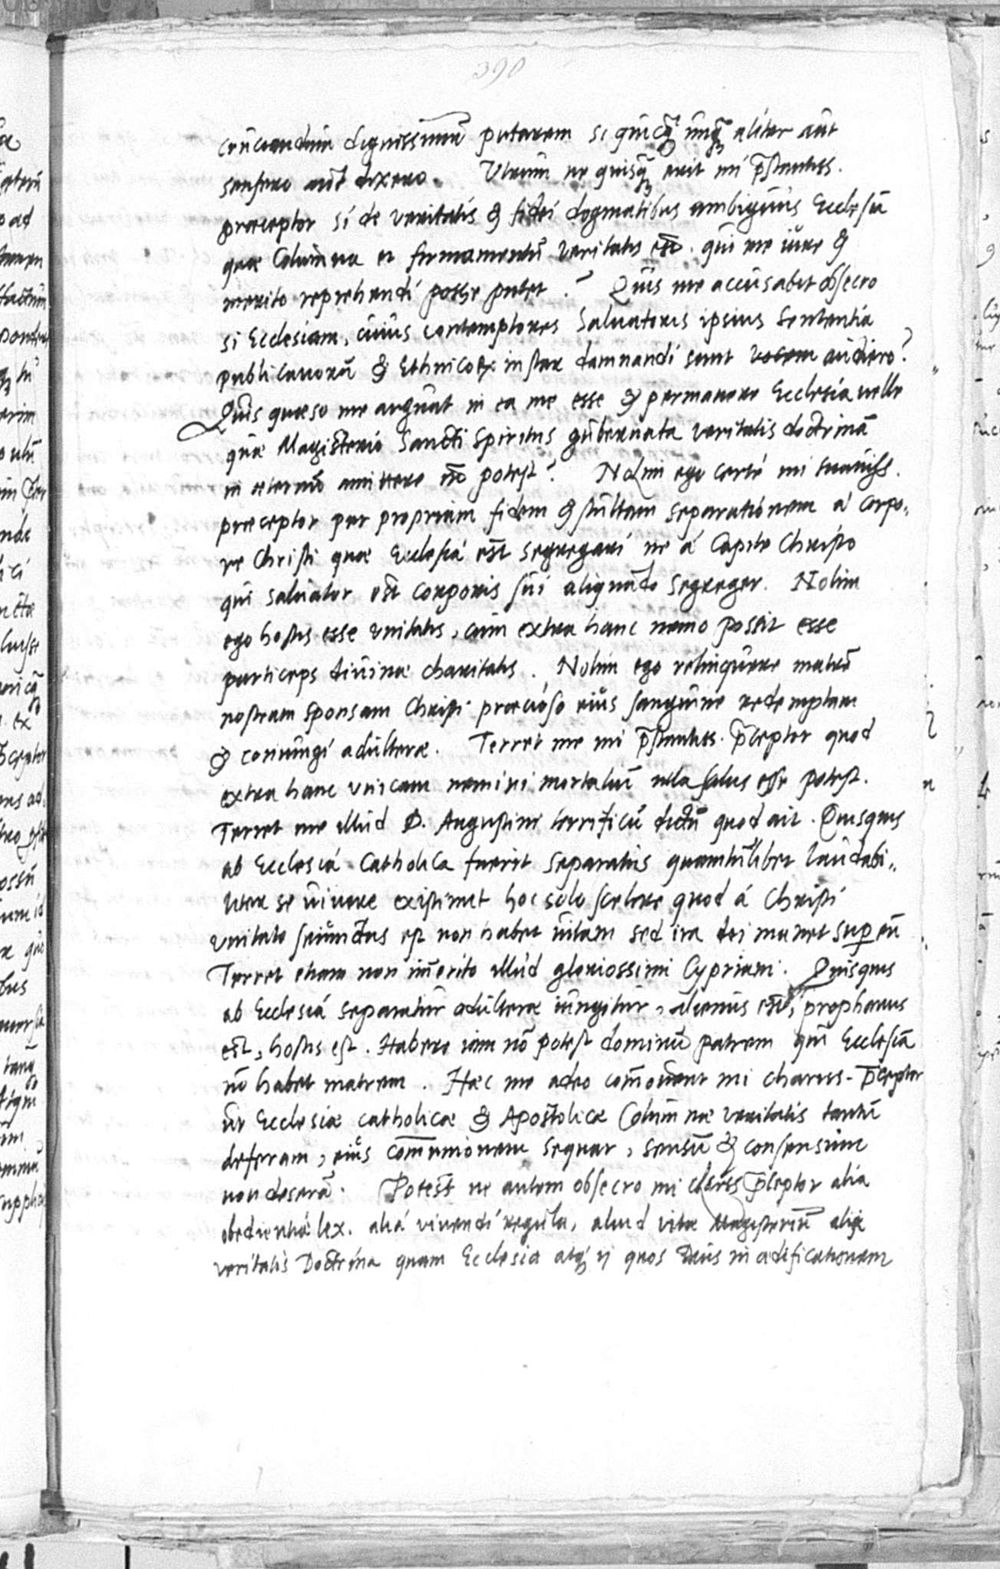 390
dignissimum putarem si quicq̃ unq̃ aliter aut
sensero aut dixero. Utrum ne quisq̃ erit mi p̃stantiss.
præceptor si de veritatis & fidei dogmatibus ambiguus Ecclesiã
quæ Columna et firmamentũ veritatis est. qui me iure &
merito reprehendi posse putet? Quis me accusabit obsecro
si Ecclesiam, cuius contemptores Salvatoris ipsius sententia
publicanorũ & Ethnicoꝝ instar damnandi sunt vocem audiero?
Quis quæso me arguat in ea me esse & permanere Ecclesia velle
quæ Magisterio Sancti Spiritus gubernata veritatis doctrinã
in æternũ amittere nõ potest? Nolim ego certè mi suaviss.
præceptor per propriam fidem & stultam separationem à corpo-
re Christi quæ Ecclesia est segregari ne à Capite Christo
qui salvator est corporis sui aliquãdo segreger. Nolim
ego hostis esse unitatis, cum extra hanc nemo possit esse
particeps divinæ charitatis. Nolim ego relinquere matrẽ
nostram sponsam Christi præcioso eius sanguine redemptam
& coniungi adulteræ. Terret me mi p̃stantiss. p̃ceptor quod
extra hanc unicam nemini mortaliũ ulla salus esse potest.
Terret me illud D. Augustini terrificũ dictũ quod ait. Quisquis
ab Ecclesiá Catholica fuerit separatus quantũlibet laudabi-
liter se vivere existimet hoc solo scelere quod á Christi
unitate seiunctus est non habet vitam sed ira dei manet sup eũ
Terret etiam non im̃erito illud gloriossimi Cypriani. Quisquis
ab Ecclesiá separatur adulteræ iungitur, alienus est, prophanus
est, hostis est. Habere iam nõ potest dominũ patrem qui Ecclesiã
nõ habet matrem. Hæc me adeo com̃ovent mi chariss. p̃ceptor
ut Ecclesiæ catholicæ & Apostolicæ Columnæ veritatis tantũ
deferam, eius com̃unionem sequar, sensũ & consensum
non deserã. Potest ne autem obsecro mi p̃ceptor alia
obedientiæ lex. aliá vivendi regula, aliud vitæ Magisteriũ alia
veritatis Doctrina quam Ecclesia atq; ij quos Deus in ædificationem